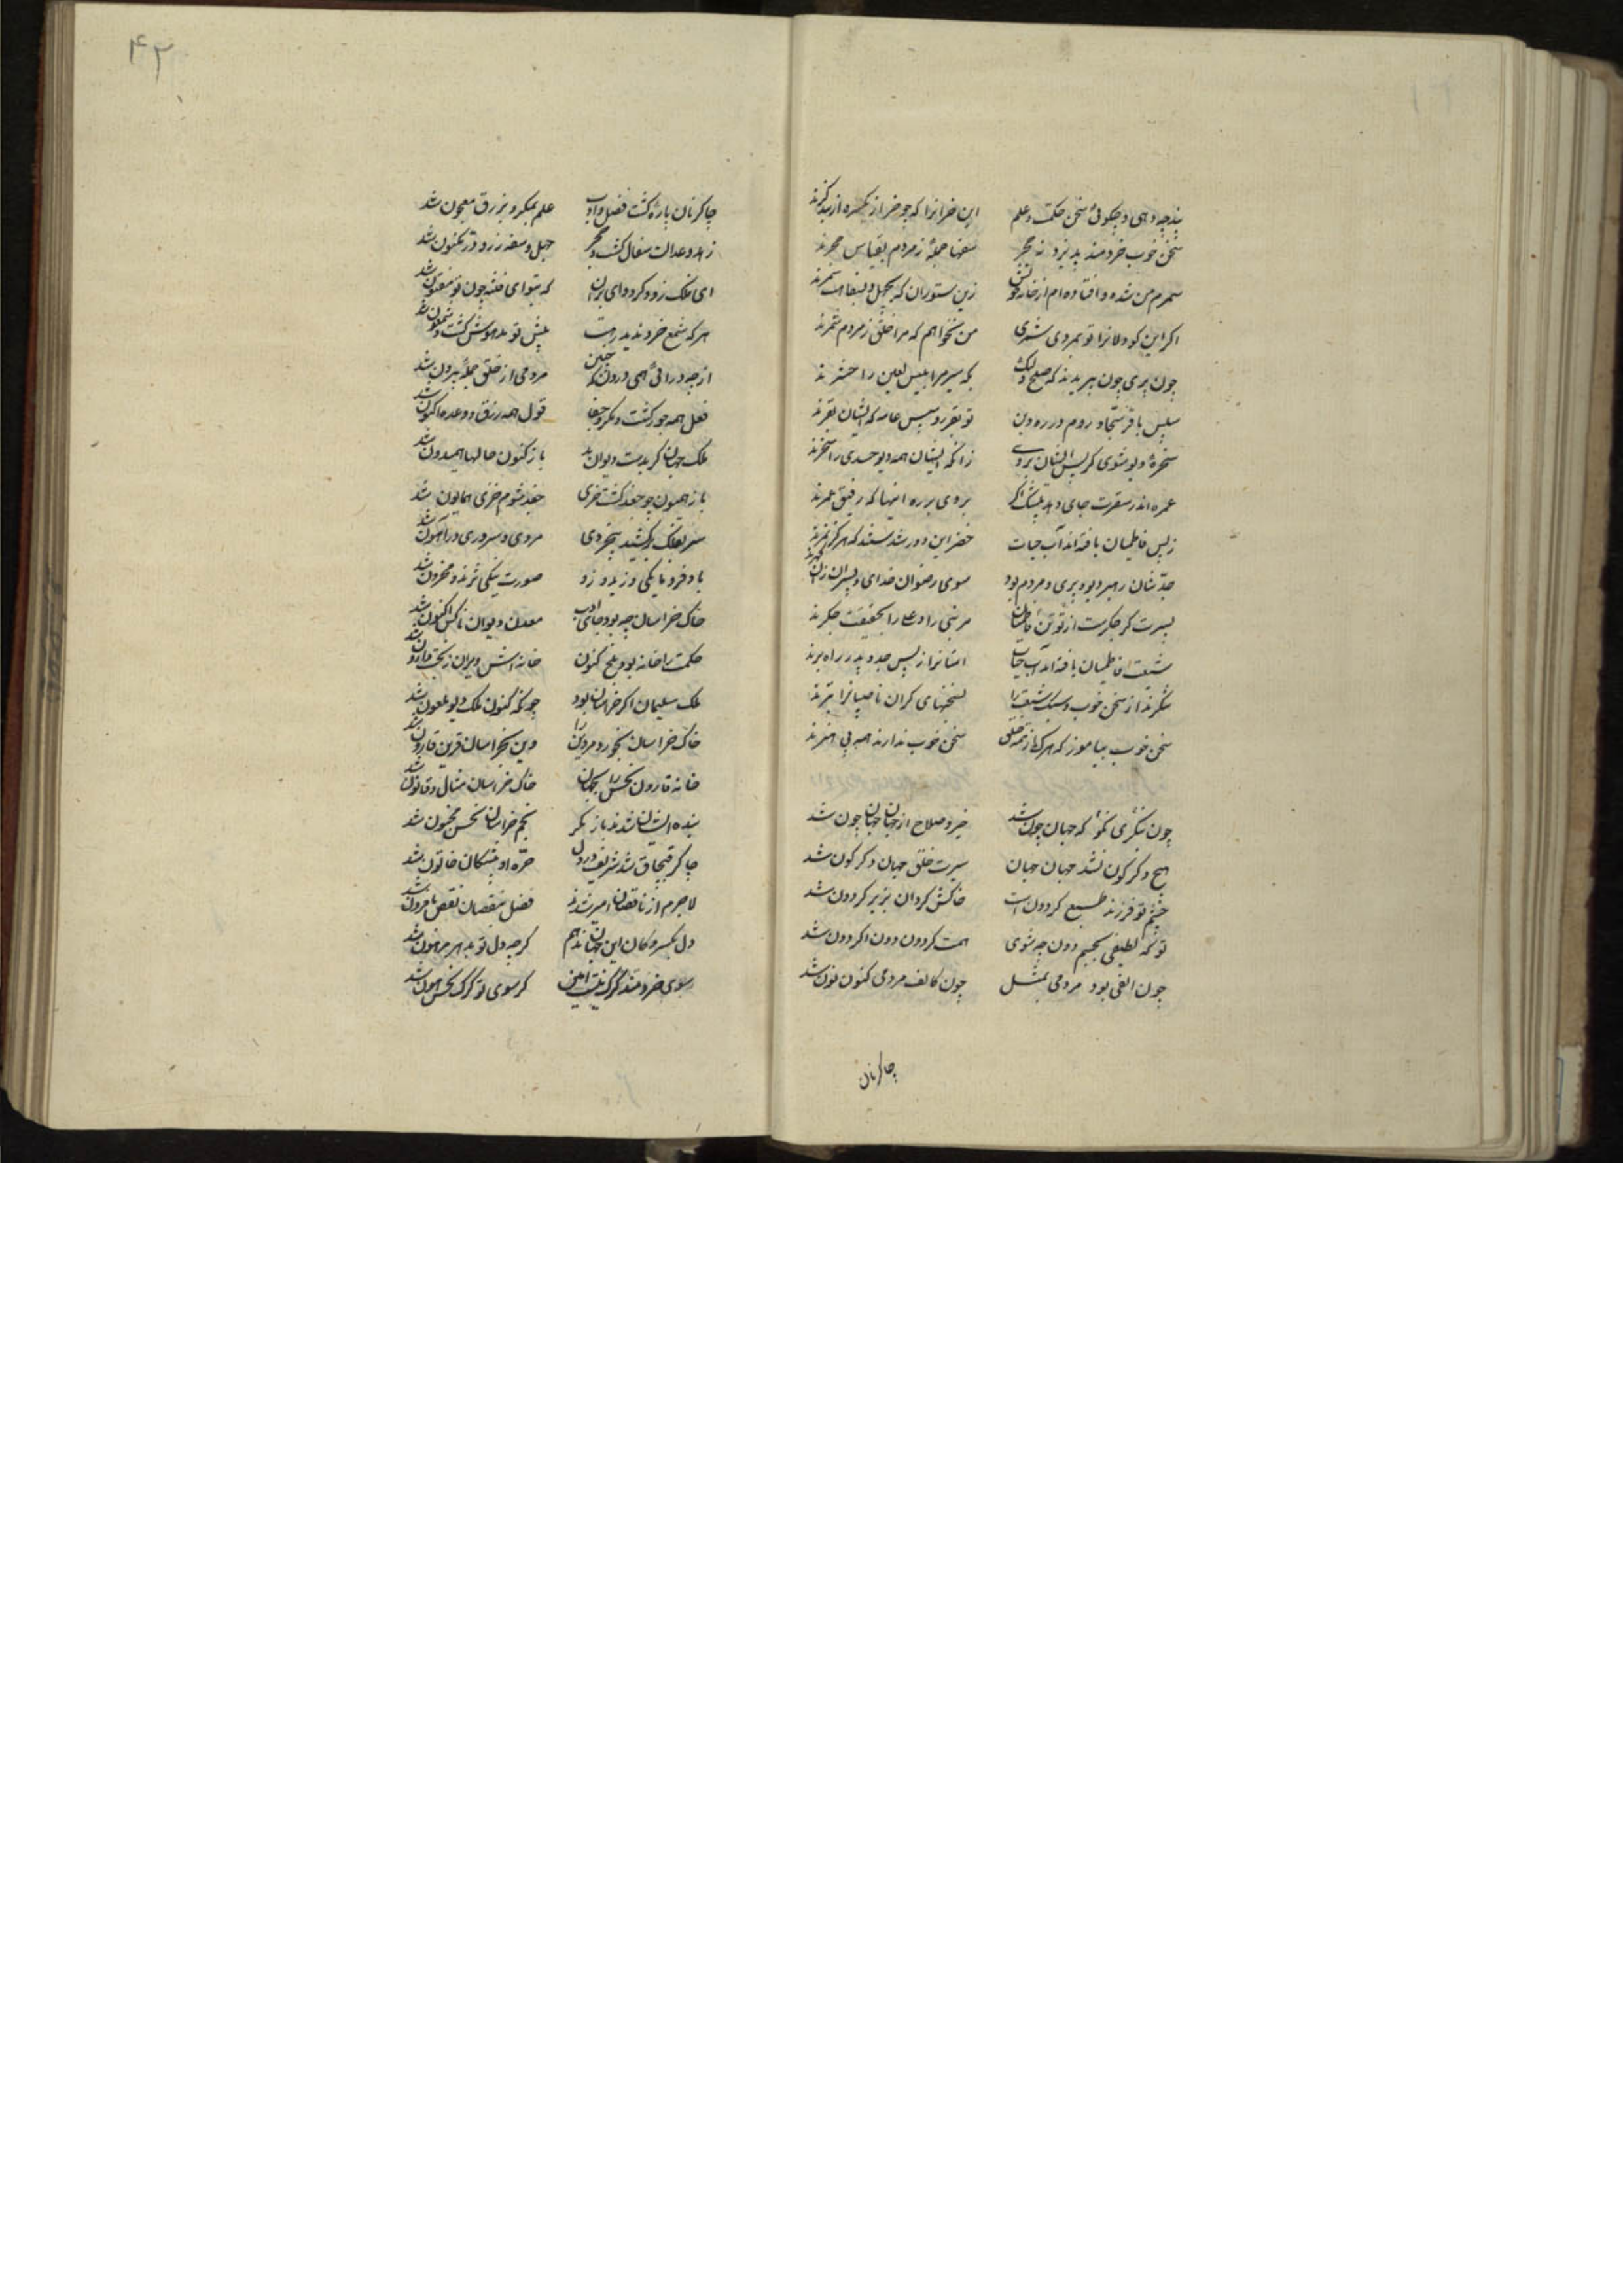 پند چه دهی و چکوئی سخن حکمت و علم این خرانرا که چو خر از یکسره از پند کرند
سخن خوب خردمند پذیرد نه حجر سفها جمله ز مردم بقیاس حجرند
سمرم من شده و افتاده ام از خانه خویش زین ستوران که بجهل و بسفاهت سمرند
اکر این کور دلانرا تو بمردی شمری من نخواهم که مرا خلق ز مردم شمرند
چون پری چون بپریدند که صلح ولیک که سیر مر ابلیس لعین را حشرند
سپس باقر و سجاد روم در ره دین تو بقر رو سپس عامه که ایشان بقرند
سخره دیو شوی کر پس ایشان بروی زانکه ایشان همه دیو جسدی را سخرند
عمره اندر سقرت جای دهد بیشک اکر بروی بر ره اینها که رفیق عمرند
ز پس فاطمیان یافته اند آب حیات خضر این دور شدستند که هرکز نمرند
جدشان رهبر دیو و پری و مردم بود سوی رضوان خدای و پسران زان کهرند
پسرت کر جکرست از تو تن فاطمیان مر نبی را و علی را بحقیقت جکرند
شیعت فاطمیان یافته اند آب حیات امتانرا ز پس جد و پدر راه برند
شکرند از سخن خوب و سبک شیعت را بسخنهای کران ناصبیانرا تبرند
سخن خوب بیاموز که هرک از همه خلق سخن خوب ندارند همه بی هنرند
چون نکری نکو که جهان چون شد خیر و صلاح از جهان جهان چون شد
هیچ دکر کون نشد جهان جهان سیرت خلق جهان دکر کون شد
جسم تو فرزند طبیع کردون است خاکش کردان بزیر کردون شد
تو که لطیفی بجسم دون چه شوی همت کردون دون اکر دون شد
چون الفی بود مردمی بمثل چون کالف مردمی کنون نون شد
چاکرنان
۴۲
چاکر نان پاره کشت فضل و ادب علم بمکر و بزرق معجون شد
زهد و عدالت سفال کشت و حجر جهل و سفه زر و در مکنون شد
ای فلک زود کرد وای بران که بتو ای فتنه جون تو مفتون شد
هر که شمع خرد ندید رهت پیش تو مدهوش کشت و شمعون شد
از چه درائی همی درون که چنین مردمی از خلق جمله بیرون شد
فعل همه جور کشت و مکر و جفا قول همه زرق و وعده افسون شد
ملک جهان کر بدست دیوان بد باز کنون حالها همیدون شد
باز همیون چو جغد کشت خری جغد شوم خزی همایون شد
سر بفلک برکشید بیخردی مردمی و سروری در اهون شد
باد فرومایکی وزید و زو صورت نیکی نژند و محزون شد
خاک خراسان چه بود جای ادب معدن دیوان ناکس اکنون شد
حکمت را خانه بود بلخ کنون خانه اش ویران ز بخت وارون شد
ملک سلیمان اکر خراسان بود چونکه کنون ملک دیو ملعون شد
خاک خراسان بخورد مر دین را دین بخراسان قرین قارون شد
خانه قارون نحس را بجهان خاک خراسان مثال و قانون شد
بنده ایشان بدند باز نکر نجم خراسان نحس مخبون شد
چاکر قبچاق شد شریف و ز دل حره او پیشکان خاتون شد
لاجرم ار ناقصان امیر شدند فضل بنقصان نقص بافزون شد
دل بکسرو کان این جهان ندهم کرچه دل تو بدهر مرهون شد
سوی خردمند کرک نیست امین کر سوی تو کرک نحس هامون شد